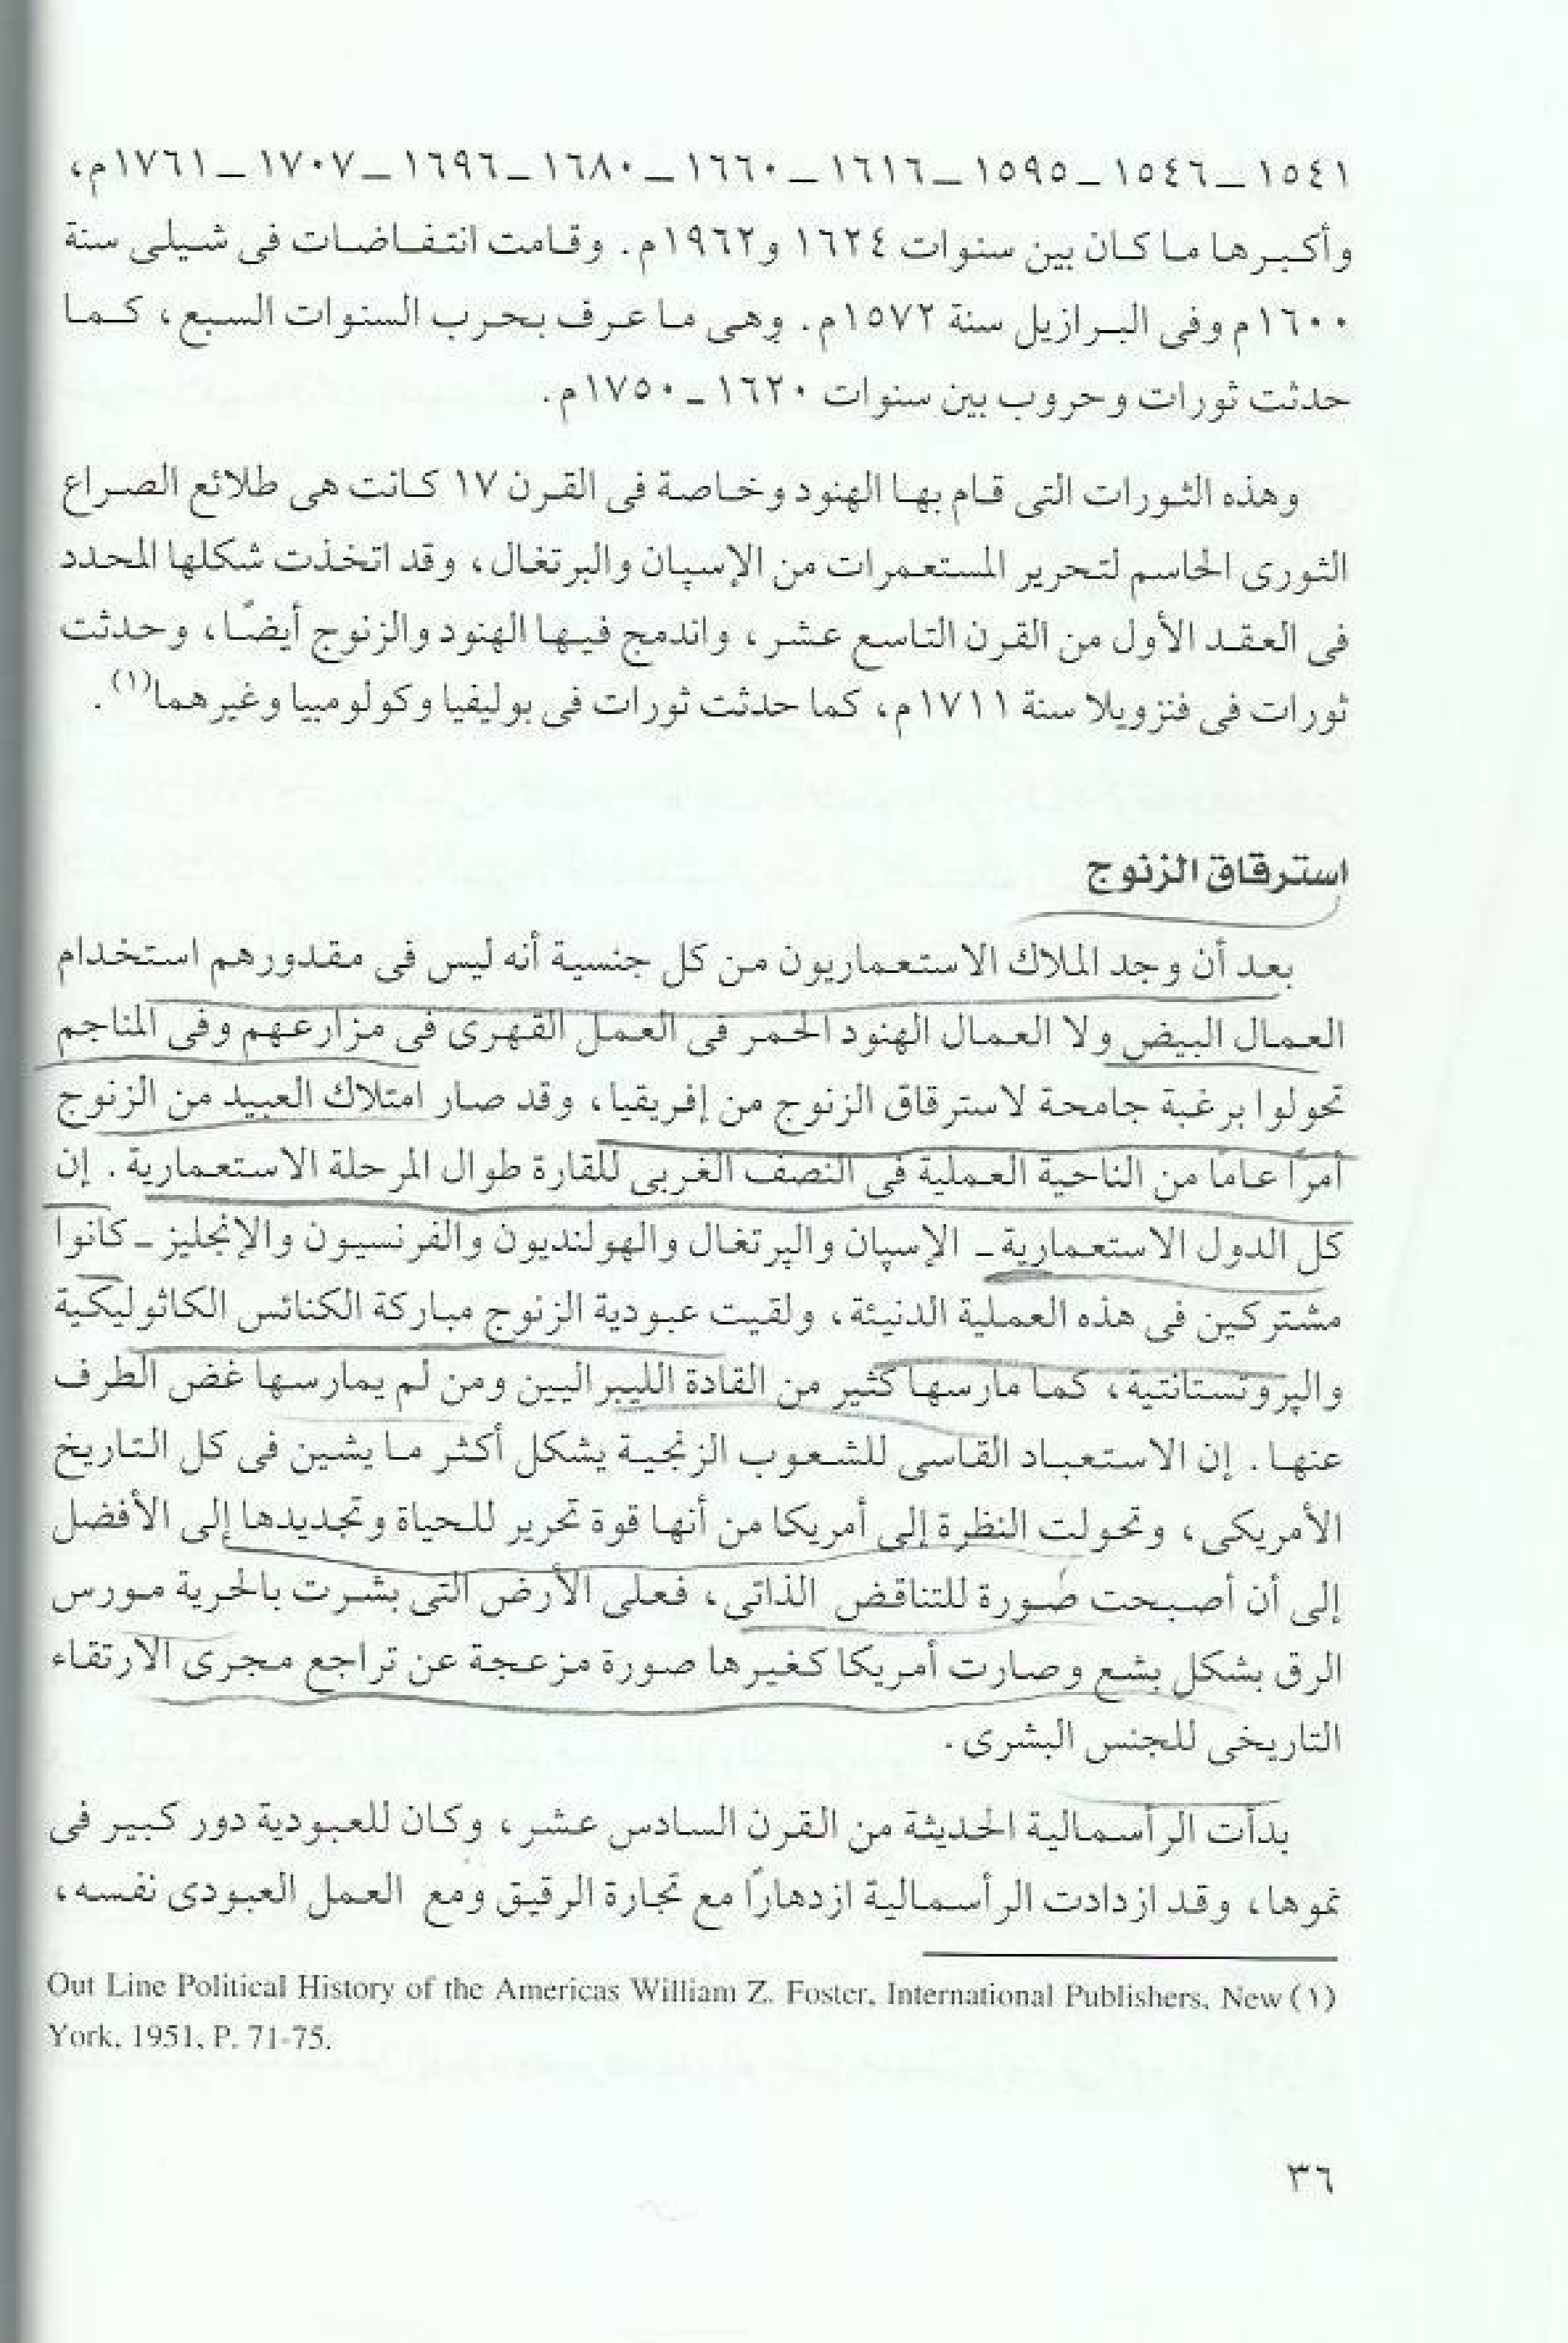 ١٥٤١ ـ ١٥٤٦ ـ ١٥٩٥ ـ ١٦١٦ ـ ١٦٦٠ ـ ١٦٨٠ ـ ١٦٩٦ ـ ١٧٠٧ ـ ١٧٦١م،
وأكبرها ما كان بين سنوات ١٦٢٤ و١٩٦٢م. وقامت انتفاضات فى شيلى سنة
١٦٠٠م وفى البرازيل سنة ١٥٧٢م. وهى ما عرف بحرب السنوات السبع، كما
حدثت ثورات وحروب بين سنوات ١٦٢٠ ـ ١٧٥٠م.
وهذه الثورات التى قام بها الهنود وخاصة فى القرن ١٧ كانت هى طلائع الصراع
الثورى الحاسم لتحرير المستعمرات من الإسپان والبرتغال، وقد اتخذت شكلها المحدد
فى العقد الأول من القرن التاسع عشر، واندمج فيها الهنود والزنوج أيضًا، وحدثت
ثورات فى فنزويلا سنة ١٧١١م، كما حدثت ثورات فى بوليفيا وكولومبيا وغيرهما(١).
استرقاق الزنوج
بعد أن وجد الملاك الاستعماريون من كل جنسية أنه ليس فى مقدورهم استخدام
العمال البيض ولا العمال الهنود الحمر فى العمل القهرى فى مزارعهم وفى المناجم
تحولوا برغبة جامحة لاسترقاق الزنوج من إفريقيا، وقد صار امتلاك العبيد من الزنوج
أمرًا عامًا من الناحية العملية فى النصف الغربى للقارة طوال المرحلة الاستعمارية. إن
كل الدول الاستعمارية ـ الإسپان والپرتغال والهولنديون والفرنسيون والإنجليز ـ كانوا
مشتركين فى هذه العملية الدنيئة، ولقيت عبودية الزنوج مباركة الكنائس الكاثوليكية
والپروتستانتية، كما مارسها كثير من القادة الليبراليين ومن لم يمارسها غض الطرف
عنها. إن الاستعباد القاسى للشعوب الزنجية يشكل أكثر ما يشين فى كل التاريخ
الأمريكى، وتحولت النظرة إلى أمريكا من أنها قوة تحرير للحياة وتجديدها إلى الأفضل
إلى أن أصبحت صورة للتناقض الذاتى، فعلى الأرض التى بشرت بالحرية مورس
الرق بشكل بشع وصارت أمريكا كغيرها صورة مزعجة عن تراجع مجرى الارتقاء
التاريخى للجنس البشرى.
بدأت الرأسمالية الحديثة من القرن السادس عشر، وكان للعبودية دور كبير فى
نموها، وقد ازدادت الرأسمالية ازدهارًا مع تجارة الرقيق ومع العمل العبودى نفسه،
Out Line Political History of the Americas William Z. Foster, International Publishers, New (١)
York, 1951, P. 71-75.
٣٦